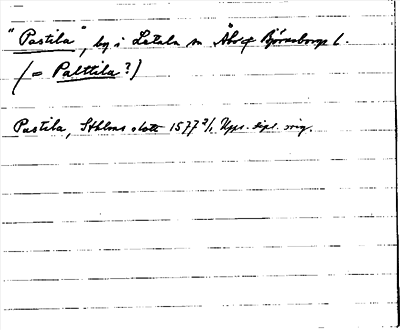 "Pastila", by i Letala sn Åbo o Björneborgs l.
(= Palttila?)
Pastila, Sthlms slott 1577 2/1 Upps. dipl. orig.